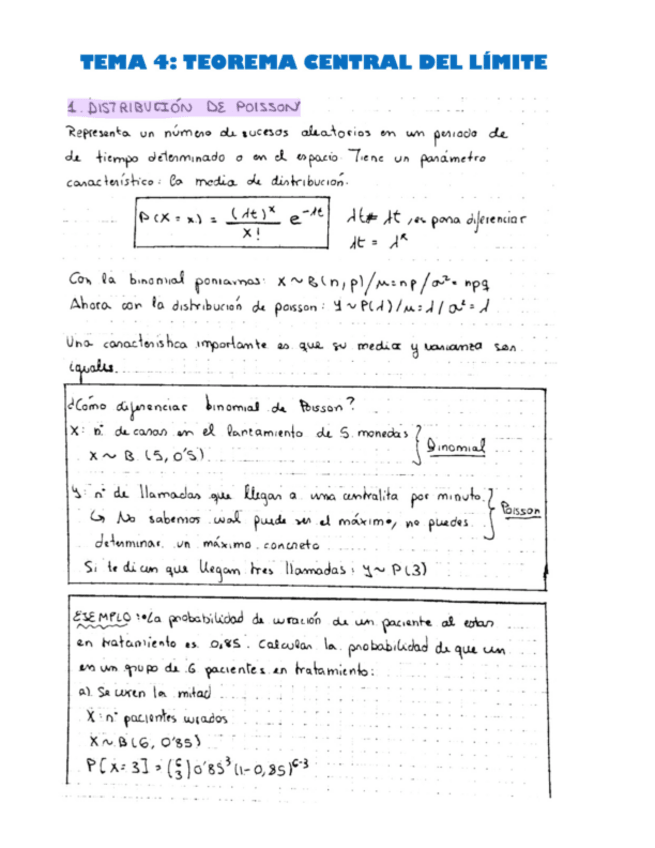 TEMA 4: TEOREMA CENTRAL DEL LÍMITE
1. DISTRIBUCIÓN DE POISSON
Representa un número de sucesos aleatorios en un periodo de
de tiempo determinado o en el espacio. Tiene un parámetro
característico: la media de distribución.
P(X = x) = (λt)^x / x! e^-λt
λt ≠ λt, es para diferenciar
λt = λ*
Con la binomial poníamos: X ~ B(n, p) / μ = np / σ² = npq
Ahora con la distribución de poisson: Y ~ P(λ) / μ = λ / σ² = λ
Una característica importante es que su media y varianza son
iguales.
¿Cómo diferenciar binomial de Poisson?
X: nº de caras en el lanzamiento de 5 monedas
X ~ B (5, 0'5)
Binomial
Y: nº de llamadas que llegan a una centralita por minuto.
↳ No sabemos cual puede ser el máximo, no puedes
determinar un máximo concreto
Poisson
Si te dicen que llegan tres llamadas: Y ~ P(3)
EJEMPLO: • La probabilidad de curación de un paciente al estar
en tratamiento es 0,85. Calcular la probabilidad de que un
en un grupo de 6 pacientes en tratamiento:
a) Se curen la mitad
X: nº pacientes curados
X ~ B(6, 0'85)
P[X = 3] = (6 3) 0'85³ (1 - 0,85)^6-3